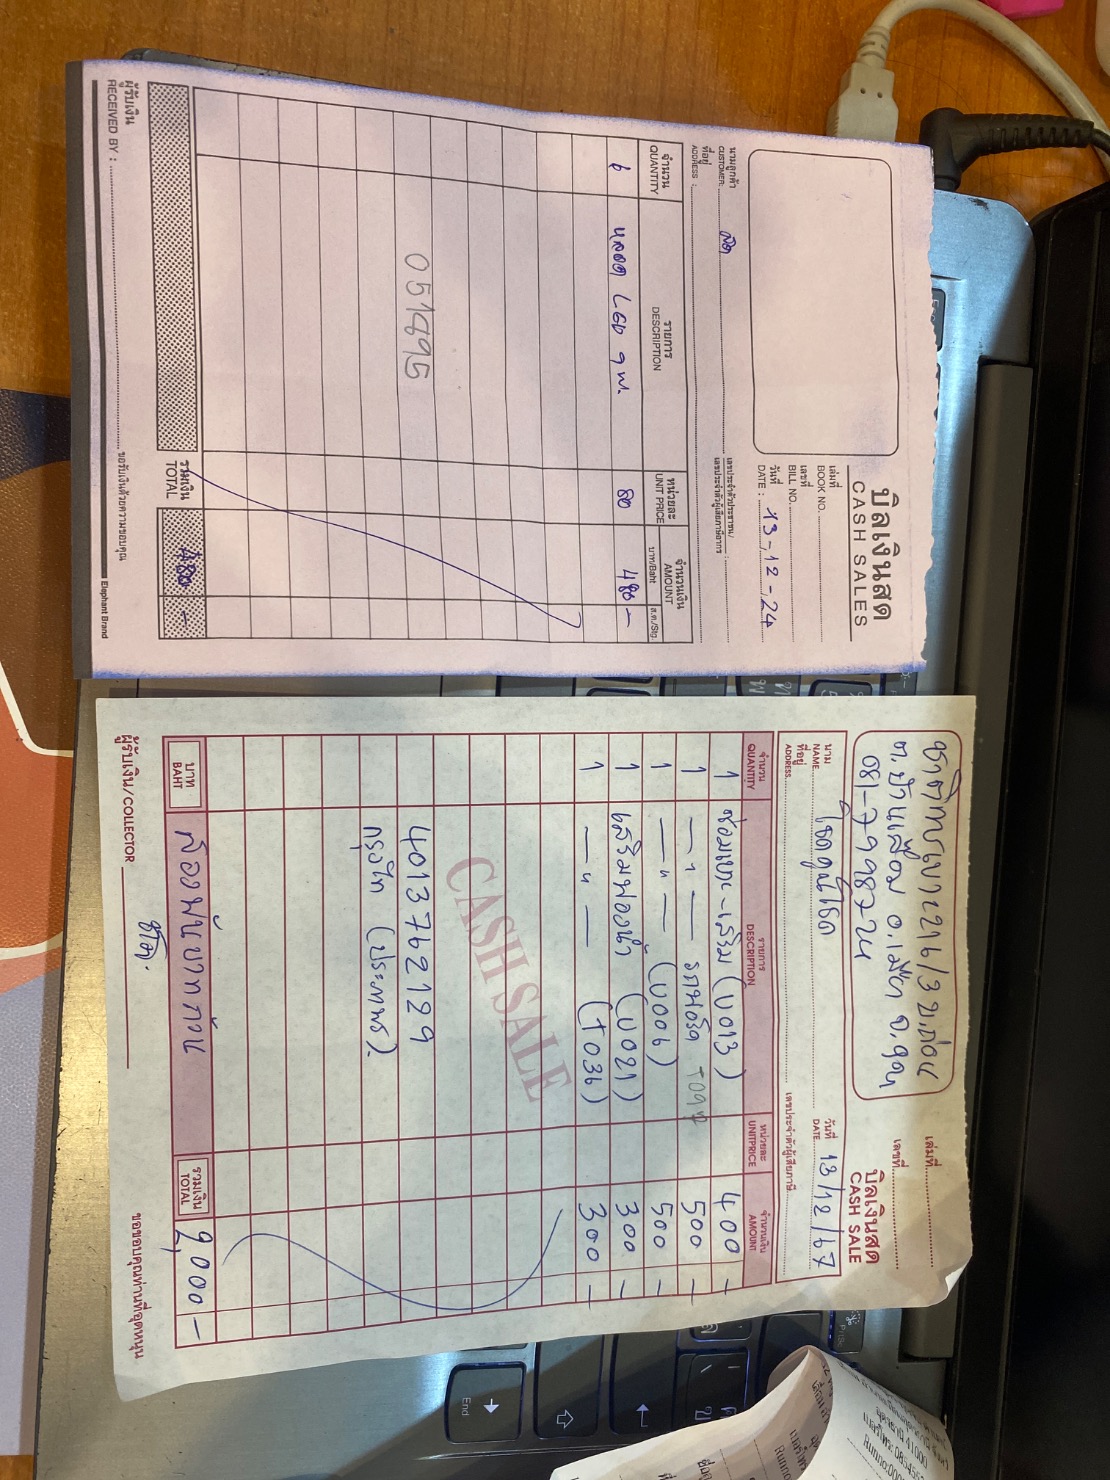 บิลเงินสด
CASH SALES
เล่มที่
BOOK NO.
เลขที่
BILL NO.
วันที่
DATE : 13-12-24
นามลูกค้า
CUSTOMER: สด
ที่อยู่
ADDRESS :
เลขประจำตัวประชาชน/
เลขประจำตัวผู้เสียภาษีอากร
จำนวน
QUANTITY
รายการ
DESCRIPTION
หน่วยละ
UNIT PRICE
จำนวนเงิน
AMOUNT
บาท/Baht
ส.ต./Stg.
6 หลอด LED 9 W. 80 480 -
051495
รวมเงิน
TOTAL 480 -
ผู้รับเงิน
RECEIVED BY :
ขอรับเงินด้วยความขอบคุณ
Elephant Brand
ชาติการเบาะ 216/3 ข.
ต.บ้านเลื่อม อ.เมือง จ.อุดร
081-7998724
เล่มที่
เลขที่
บิลเงินสด
CASH SALE
นาม
NAME โชคคูณโชค
วันที่
DATE 13/12/67
ที่อยู่
ADDRESS
เลขประจำตัวผู้เสียภาษี
จำนวน
QUANTITY
รายการ
DESCRIPTION
หน่วยละ
UNITPRICE
จำนวนเงิน
AMOUNT
1 ซ่อมเบาะ-เสริม (U013) 400 -
1 — " — T092 500 -
1 — " — (U006) 500 -
1 เสริมฟองน้ำ (U021) 300 -
1 — " — (T036) 300 -
CASH SALE
4013762129
กรุงไทย (ประภาพร).
บาท
BAHT
สองพันบาทถ้วน
รวมเงิน
TOTAL
2,000 -
ผู้รับเงิน/COLLECTOR
ขอขอบคุณท่านที่อุดหนุน
End